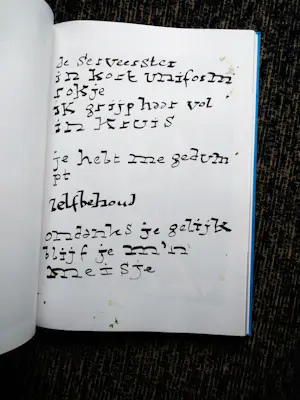 de serveerster
in kort uniform
rokje
ik grijp haar vol
in kruis
je hebt me gedum
pt
zelfbehoud
ondanks je gelijk
blijf je m'n
meisje